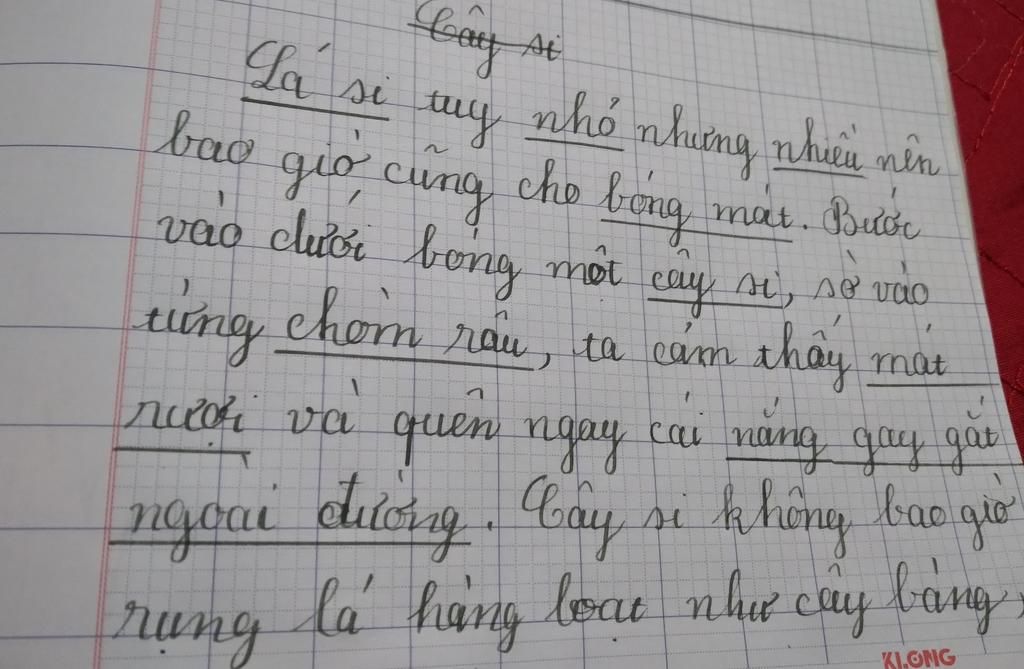 Cây si
Lá si tuy nhỏ nhưng nhiều nên
bao giờ cũng cho bóng mát. Bước
vào dưới bóng một cây si, sờ vào
từng chòm râu, ta cảm thấy mát
rượi và quên ngay cái nắng gay gắt
ngoài đường. Cây si không bao giờ
rụng lá hàng loạt như cây bàng,
KLONG